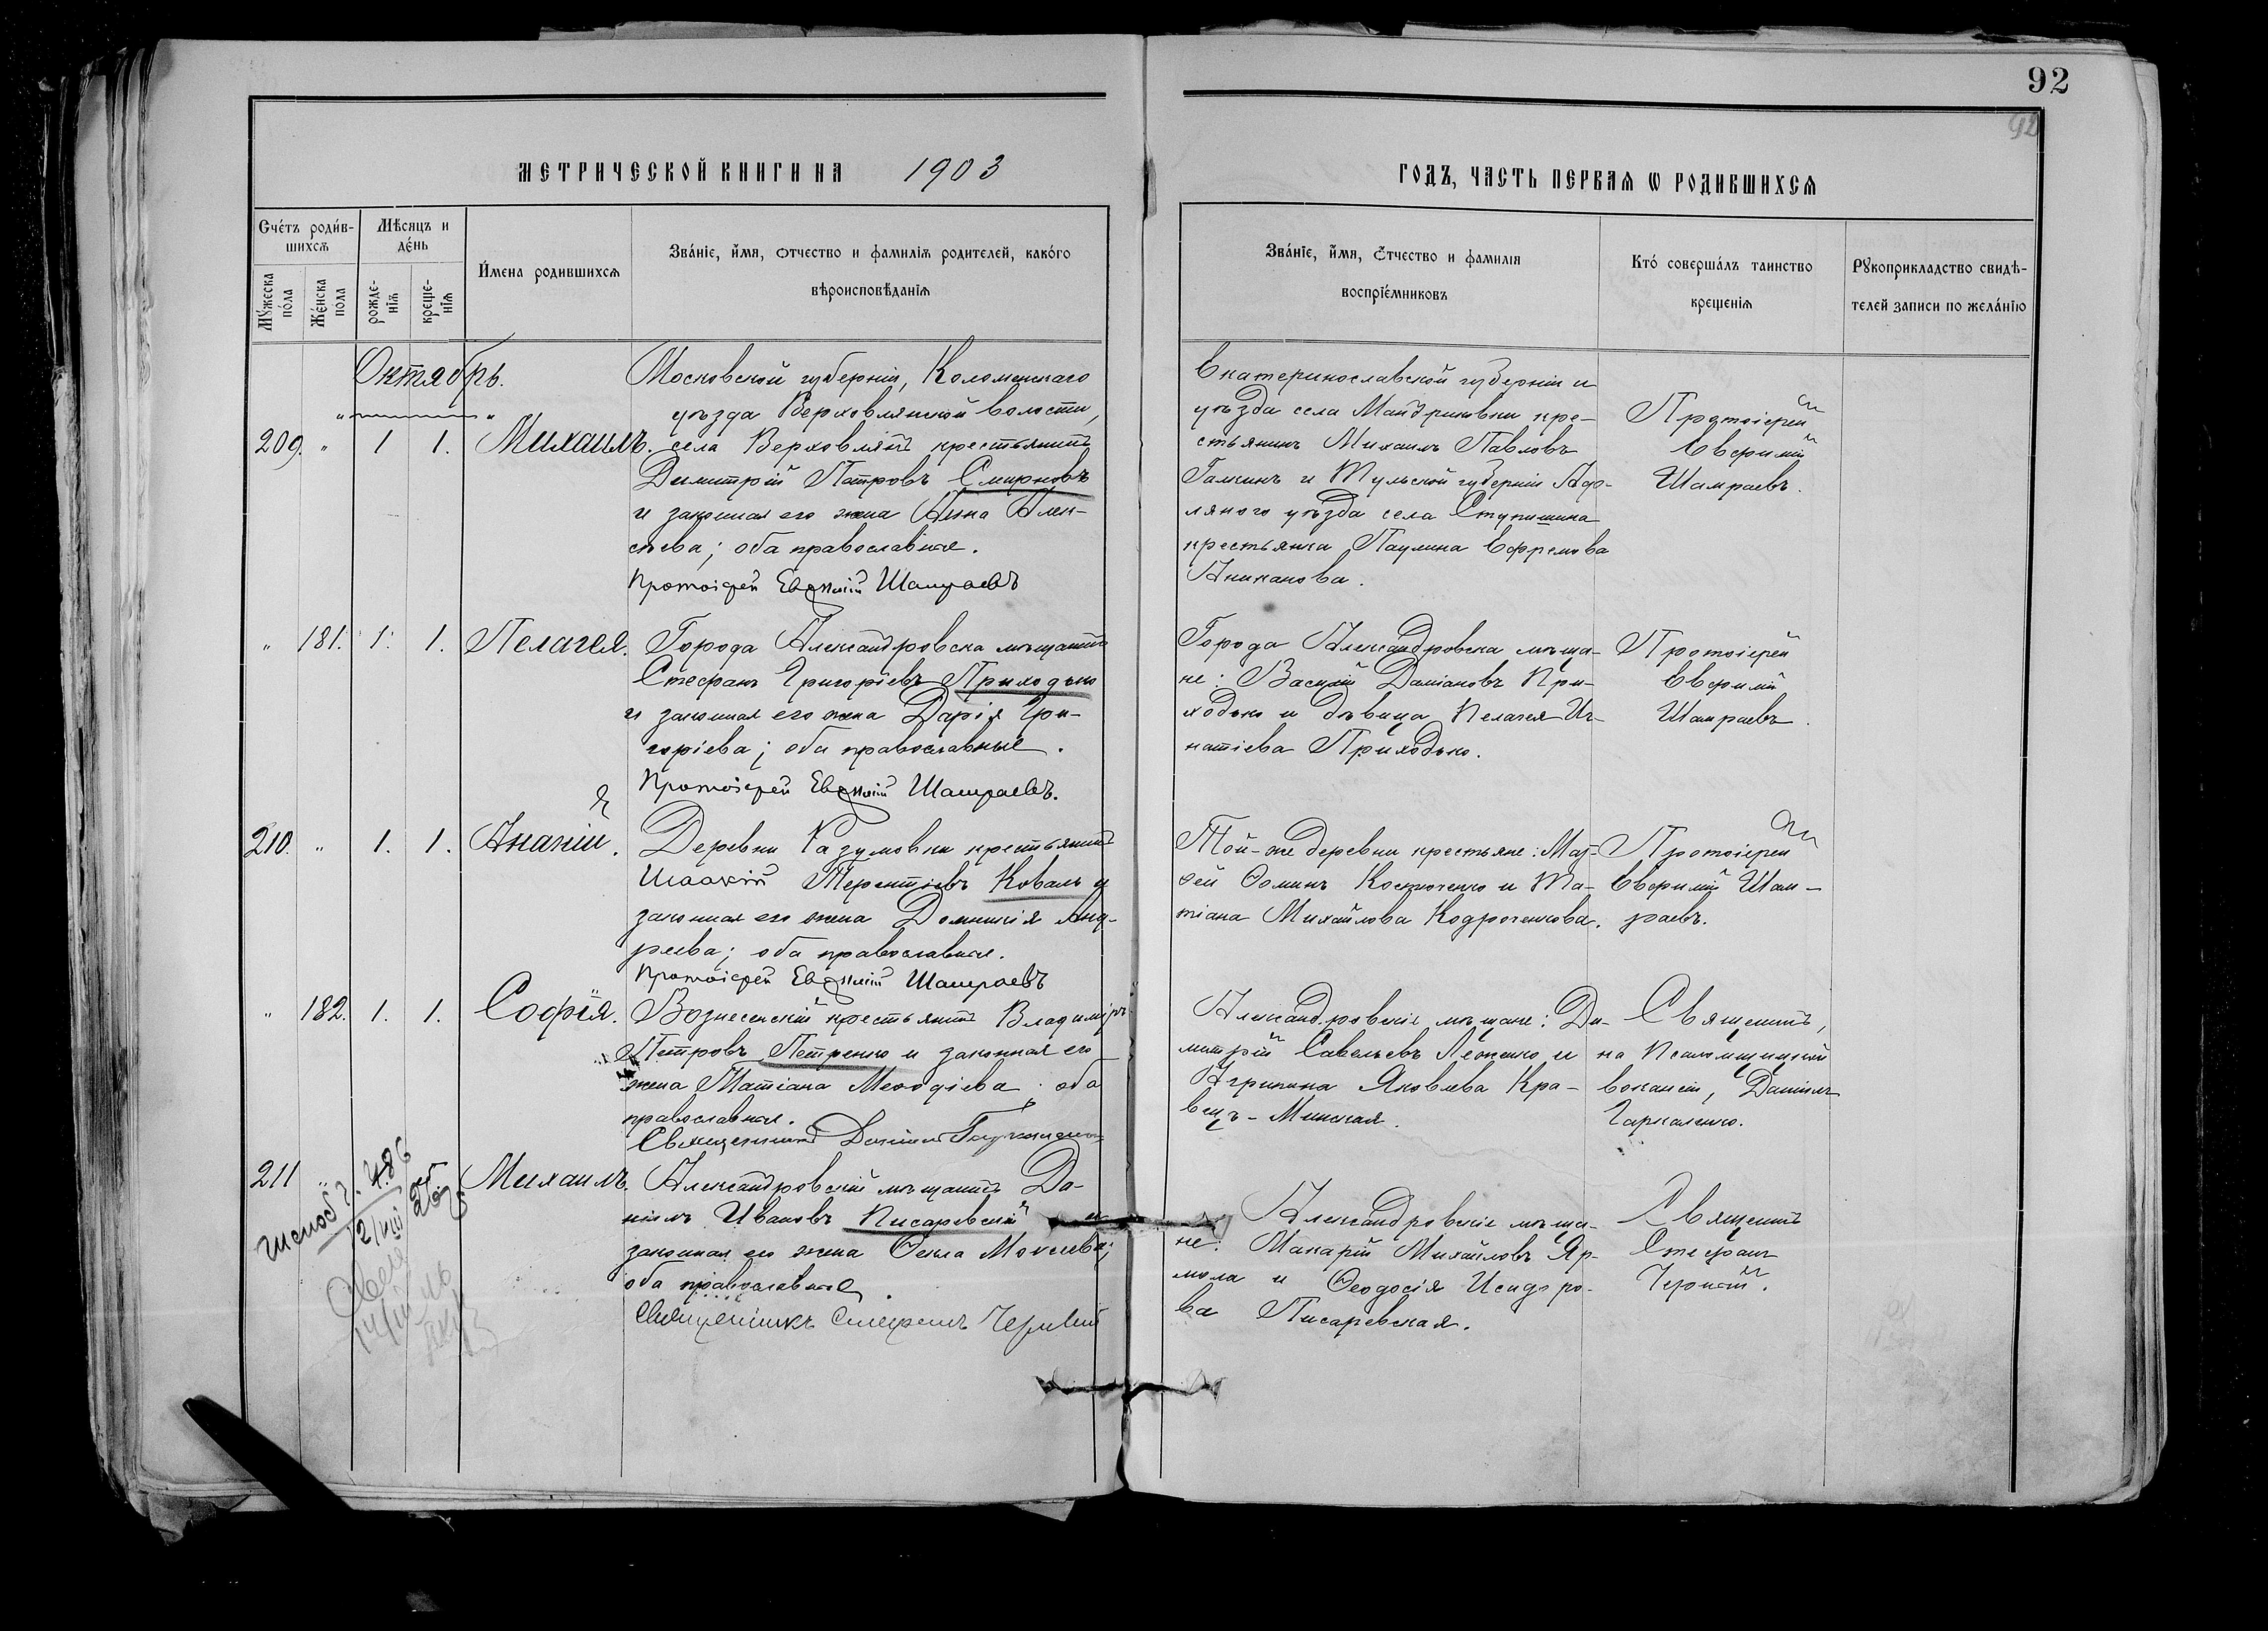 92
92
МЕТРИЧЕСКОЙ КНИГИ НА 1903
ГОДЪ, ЧАСТЬ ПЕРВАЯ Ѡ РОДИВШИХСЯ
Счетъ родившихся
Мѣсяцъ и день
Мужеска пола
Женска пола
рожденія
крещенія
Имена родившихся
Званіе, имя, отчество и фамилія родителей, какого
вѣроисповѣданія
Званіе, имя, отчество и фамилія
воспріемниковъ
Кто совершалъ таинство
крещенія
Рукоприкладство свидѣ-
телей записи по желанію
Октябрь.
209. " 1 1. Михаилъ.
Московской губерніи, Коломенскаго
уѣзда Верховлянской волости,
села Верховлянъ крестьянинъ
Димитрій Петровъ Смирновъ
и законная его жена Анна Алек-
сѣева; оба православные.
Протоіерей Евѳимій Шамраевъ
Екатеринославской губерніи и
уѣзда села Мандриковки кре-
стьянинъ Михаилъ Павловъ
Галкинъ и Тульской губерніи
уѣзда села Ступишина
крестьянка Ефремова
Аниканова.
Протоіерей
Евфимій
Шамраевъ.
" 181. 1. 1. Пелагея.
Города Александровска мѣщанинъ
Стефанъ Григорьевъ Приходько
и законная его жена Дарія Гри-
горіева; оба православные.
Протоіерей Евѳимій Шамраевъ.
Города Александровска мѣща-
не: Василій Даміановъ При-
ходько и дѣвица Пелагея Иг-
натіева Приходько.
Протоіерей
Евфимій
Шамраевъ.
210. " 1. 1. Ананій.
Деревни Разумовки крестьянинъ
Исаакій Терентіевъ Коваль и
законная его жена Домникія Анд-
реева; оба православные.
Протоіерей Евѳимій Шамраевъ
Той-же деревни крестьяне: Мат-
ѳей Ѳоминъ Костюченко и Та-
тіана Михайлова
Протоіерей
Евфимій Шам-
раевъ.
" 182. 1. 1. Софія.
Вознесенскій крестьянинъ Владиміръ
Петровъ Петренко и законная его
жена Татіана Меѳодіева; оба
православные.
Священникъ Даніилъ
Александровскіе мѣщане: Ди-
митрій Савельевъ Леженко и
Агрипина Яковлева Кра-
вецъ-Минская.
Священникъ,
на Псаломщицкой
вакансіи, Даніилъ
Гаркаленко.
211 " Михаилъ.
Александровскій мѣщанинъ Да-
ніилъ Ивановъ Писаревскій и
законная его жена Ѳекла Моисеева;
оба православные.
Священникъ Стефанъ Черный
Александровскіе мѣща-
не: Макарій Михайловъ Яр-
мола и Ѳеодосія Исидоро-
ва Писаревская.
Священникъ
Стефанъ
Чернай.